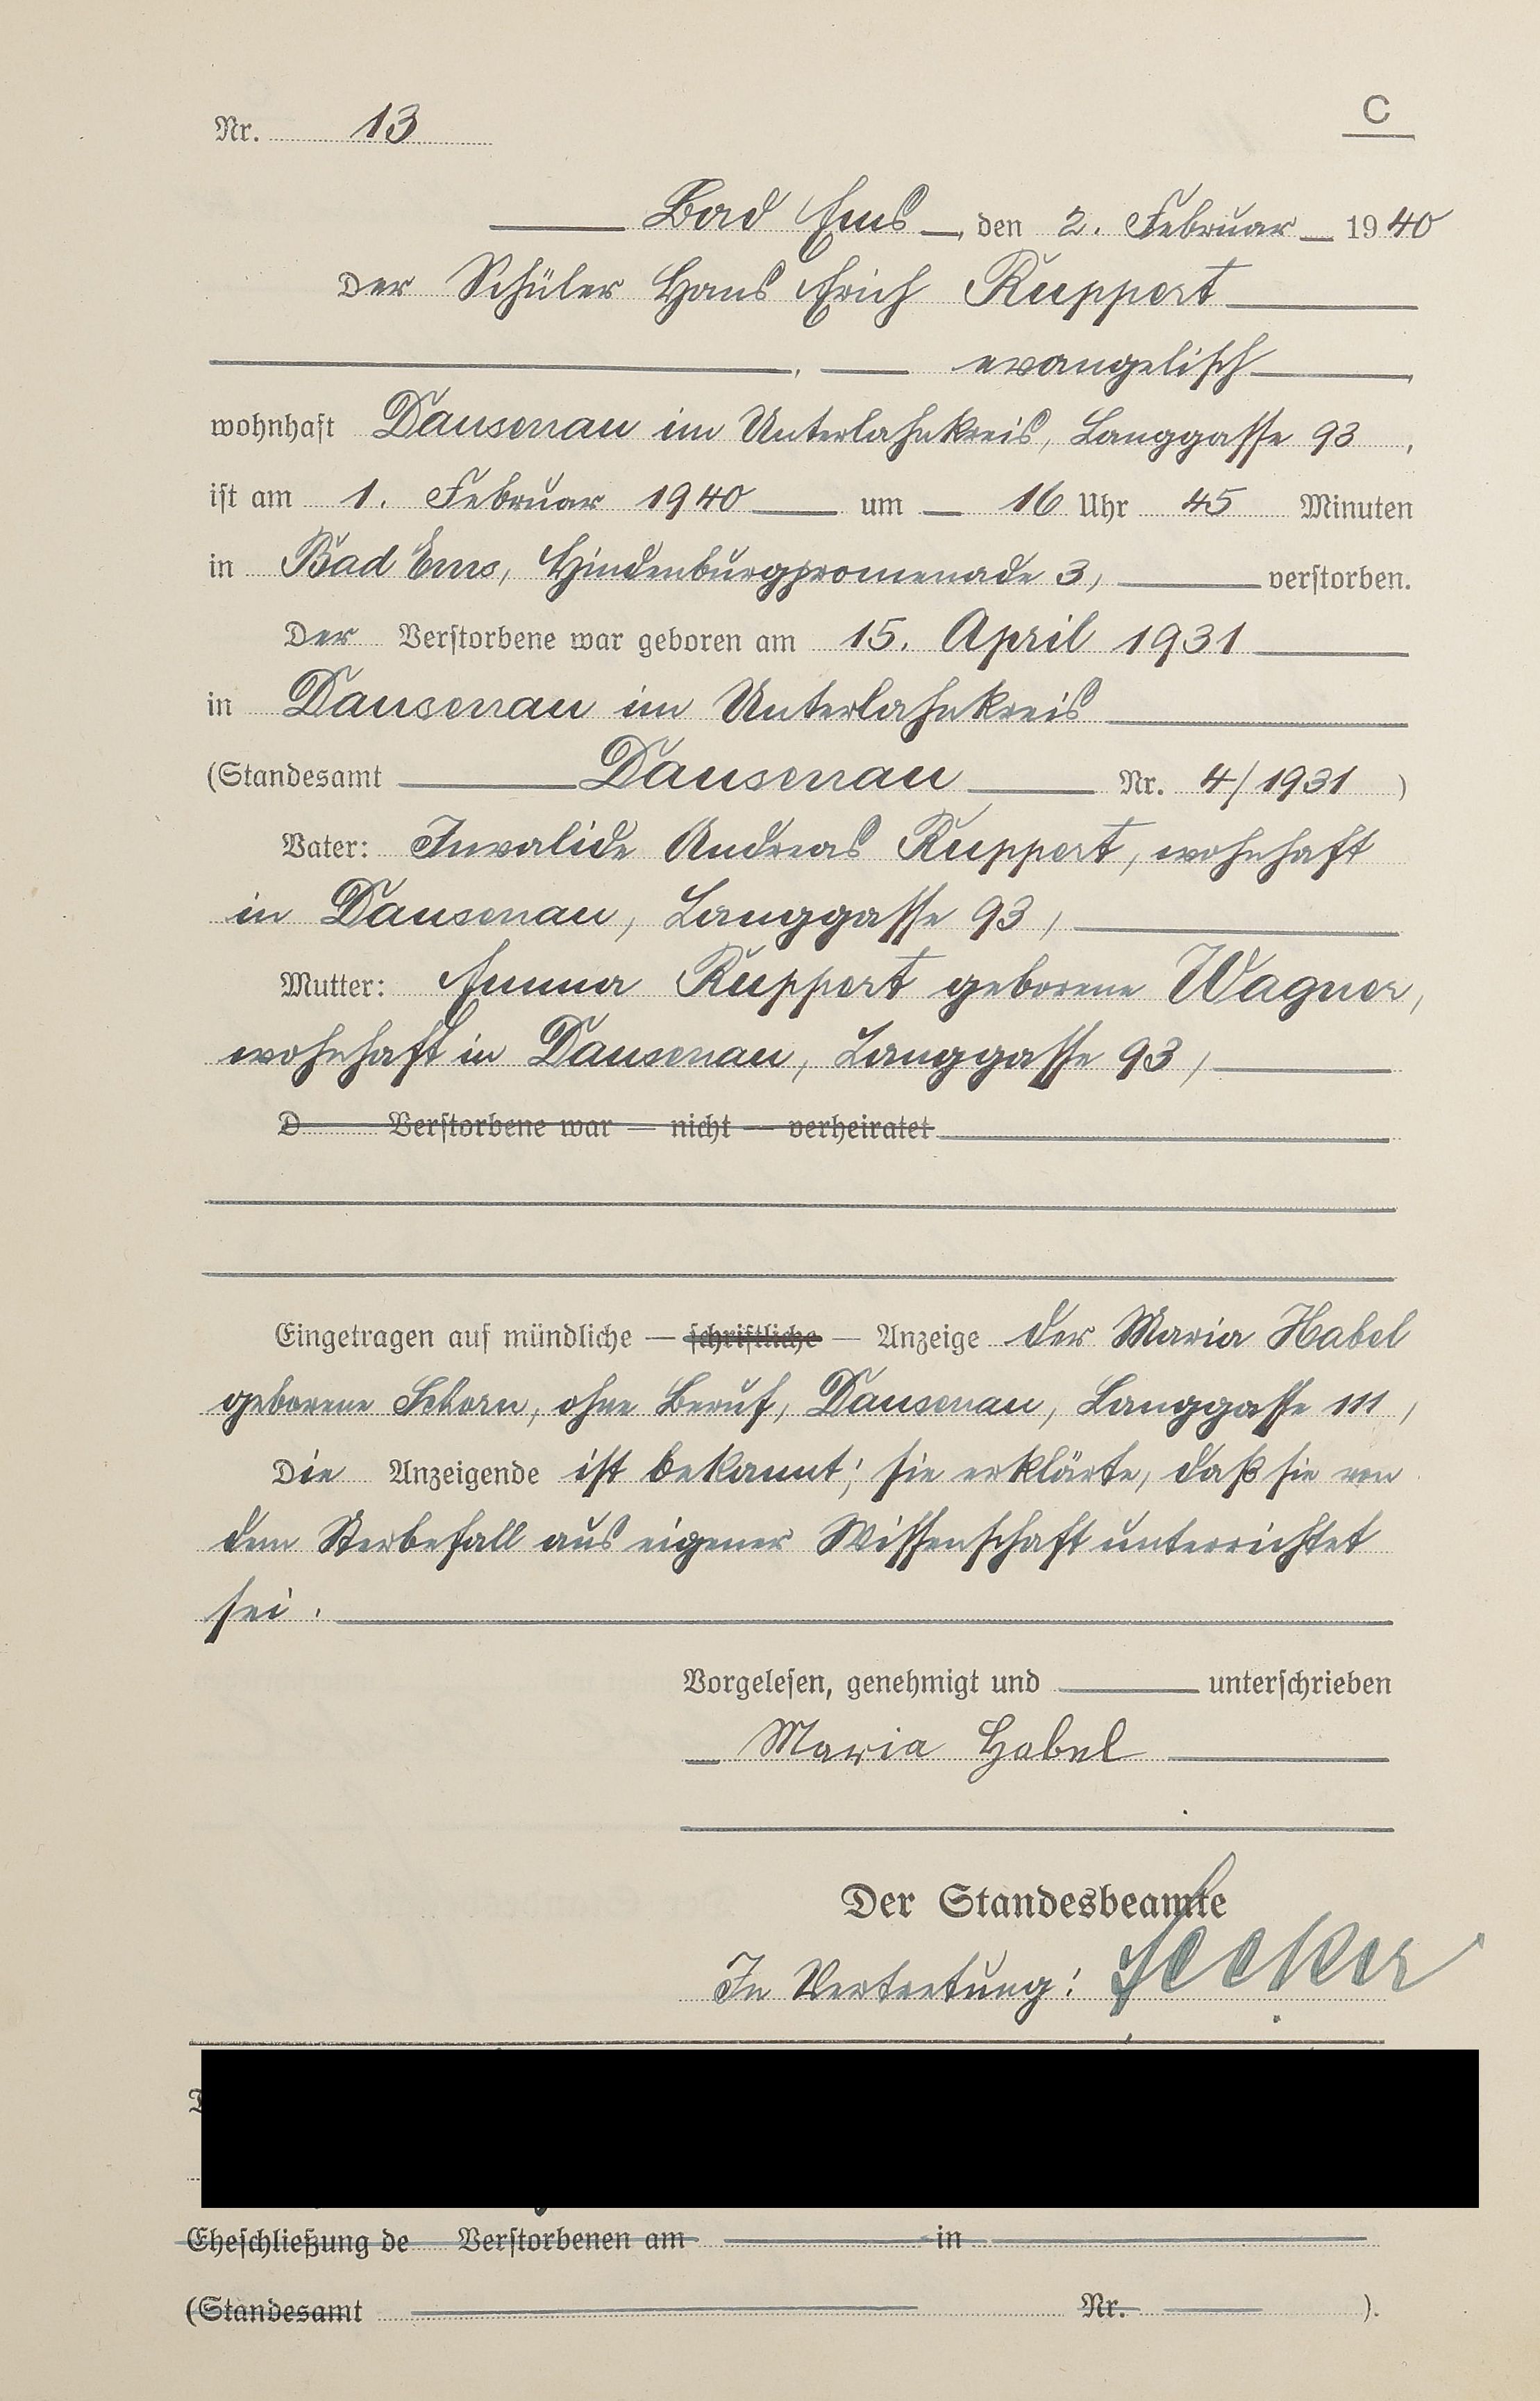 Nr. 13
C
Bad Ems, den 2. Februar 1940
Der Schüler Hans Erich Ruppert
, evangelisch,
wohnhaft Dausenau im Unterlahnkreis, Langgasse 93,
ist am 1. Februar 1940 um 16 Uhr 45 Minuten
in Bad Ems, Hindenburgpromenade 3, verstorben.
Der Verstorbene war geboren am 15. April 1931
in Dausenau im Unterlahnkreis
(Standesamt Dausenau Nr. 4/1931)
Vater: Invalide Andreas Ruppert, wohnhaft
in Dausenau, Langgasse 93,
Mutter: Emma Ruppert geborene Wagner,
wohnhaft in Dausenau, Langgasse 93,
D Verstorbene war — nicht — verheiratet
Eingetragen auf mündliche — schriftliche — Anzeige der Maria Habel
geborene Schorn, ohne Beruf, Dausenau, Langgasse 111,
Die Anzeigende ist bekannt; sie erklärte, daß sie von
dem Sterbefall aus eigener Wissenschaft unterrichtet
sei.
Vorgelesen, genehmigt und unterschrieben
Maria Habel
Der Standesbeamte
In Vertretung:
Eheschließung de Verstorbenen am in
(Standesamt Nr. ).